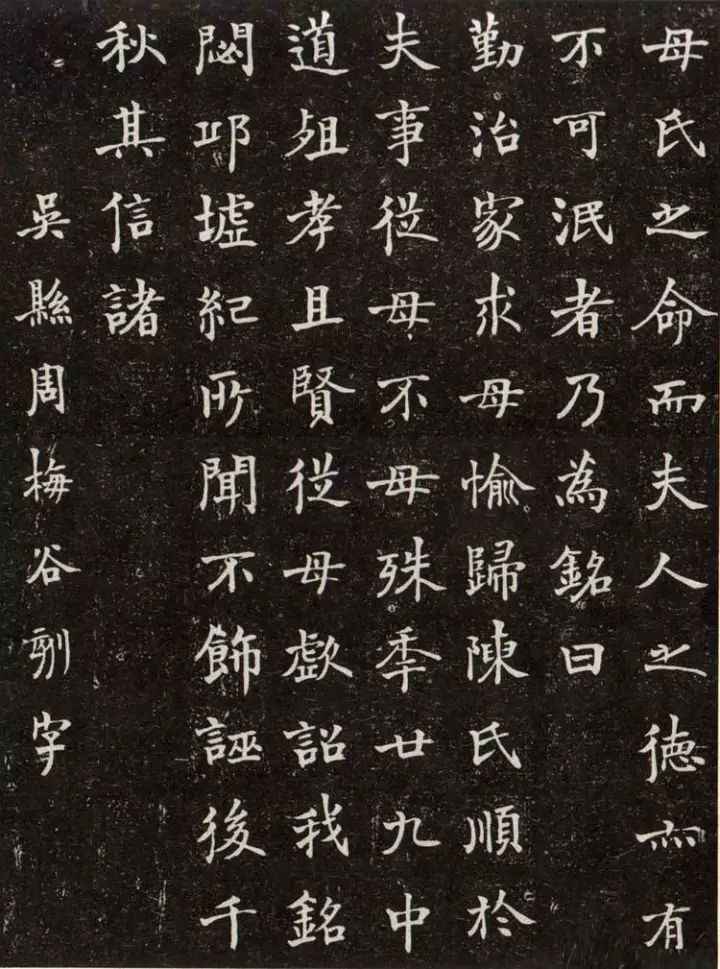 母氏之命而夫人之德亦有
不可泯者乃為銘曰
勤治家求母愉歸陳氏順於
夫事從母不母殊季廿九中
道殂孝且賢從母歔詔我銘
閟邱墟紀所聞不飾誣後千
秋其信諸
吳縣周梅谷刻字